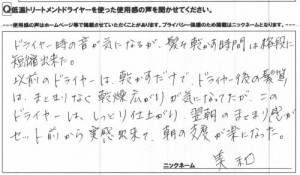 Q低温トリートメントドライヤーを使った使用感の声を聞かせてください。
使用感の声はホームページ等で掲載させていただくことがあります。プライバシー保護のため掲載はニックネームとなります。
ドライヤー時の音が気になるが、髪を乾かす時間は格段に
短縮出来た。
以前のドライヤーは、乾かすだけで、ドライヤー後の髪質
は、まとまりなく乾燥広がりが気になってたが、この
ドライヤーは、しっとり仕上がり、翌朝のまとまり感が
セット前から実感出来て、朝の支度が楽になった。
ニックネーム 美和